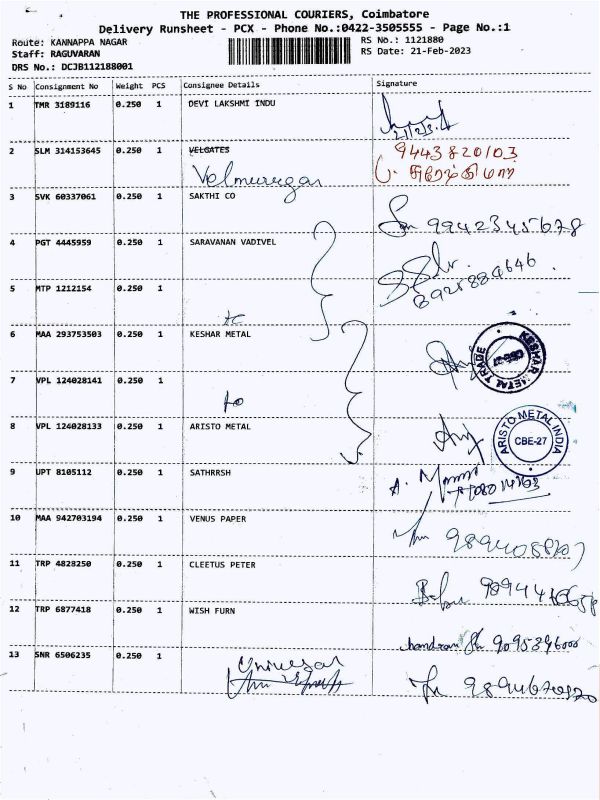 THE PROFESSIONAL COURIERS, Coimbatore
Delivery Runsheet - PCX - Phone No.:0422-3505555 - Page No.:1
Route: KANNAPPA NAGAR
Staff: RAGUVARAN
DRS No.: DCJB112188001
RS No.: 1121880
RS Date: 21-Feb-2023
S No Consignment No Weight PCS Consignee Details Signature
1 TMR 3189116 0.250 1 DEVI LAKSHMI INDU
21/2/23
2 SLM 314153645 0.250 1 VELGATES 9443820103
Valmurugan
3 SVK 60337061 0.250 1 SAKTHI CO
9942345678
4 PGT 4445959 0.250 1 SARAVANAN VADIVEL
5 MTP 1212154 0.250 1
8925884646
6 MAA 293753503 0.250 1 KESHAR METAL
KESHAR METAL TRADE
7 VPL 124028141 0.250 1
to
8 VPL 124028133 0.250 1 ARISTO METAL
ARISTO METAL INDIA
CBE-27
9 UPT 8105112 0.250 1 SATHRRSH
10 MAA 942703194 0.250 1 VENUS PAPER
11 TRP 4828250 0.250 1 CLEETUS PETER
12 TRP 6877418 0.250 1 WISH FURN
chandran 9095396000
13 SNR 6506235 0.250 1
universal